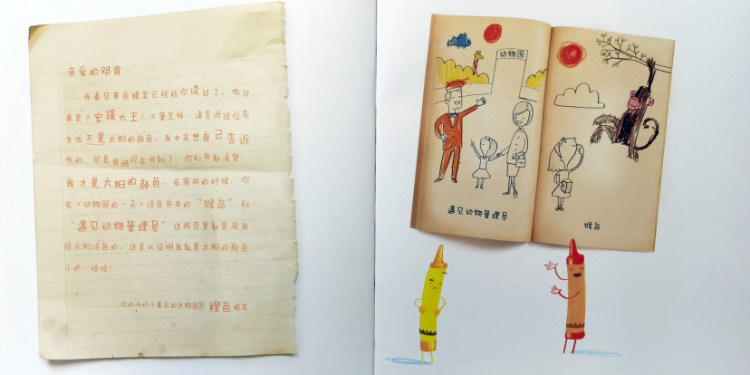 亲爱的邓肯：
我看见黄色蜡笔已经找你谈过了，他
真是个大王！不管怎样，请告诉这位先
生他不是太阳的颜色，我本来想自己告诉
他的，可是我俩现在闹翻了。你和我都清楚
我才是太阳的颜色，在的时候，你
在《动物园的一天》涂色书中的“猴岛”和
“遇见动物管理员”这两页里都是用我
给太阳涂色的，这足以证明我就是太阳的颜色
了吧，哈哈！
你的太阳颜色 橙色蜡笔
动物园
遇见动物管理员
猴岛